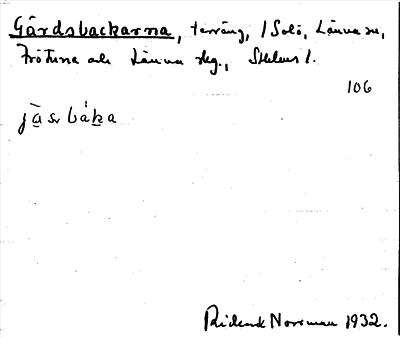 Gårdsbackarna, terräng, i Solö, Länna sn,
Frötuna och Länna skg., Sthlms l.
106
jà̱sr báḵa
Rickard Norrman 1932.